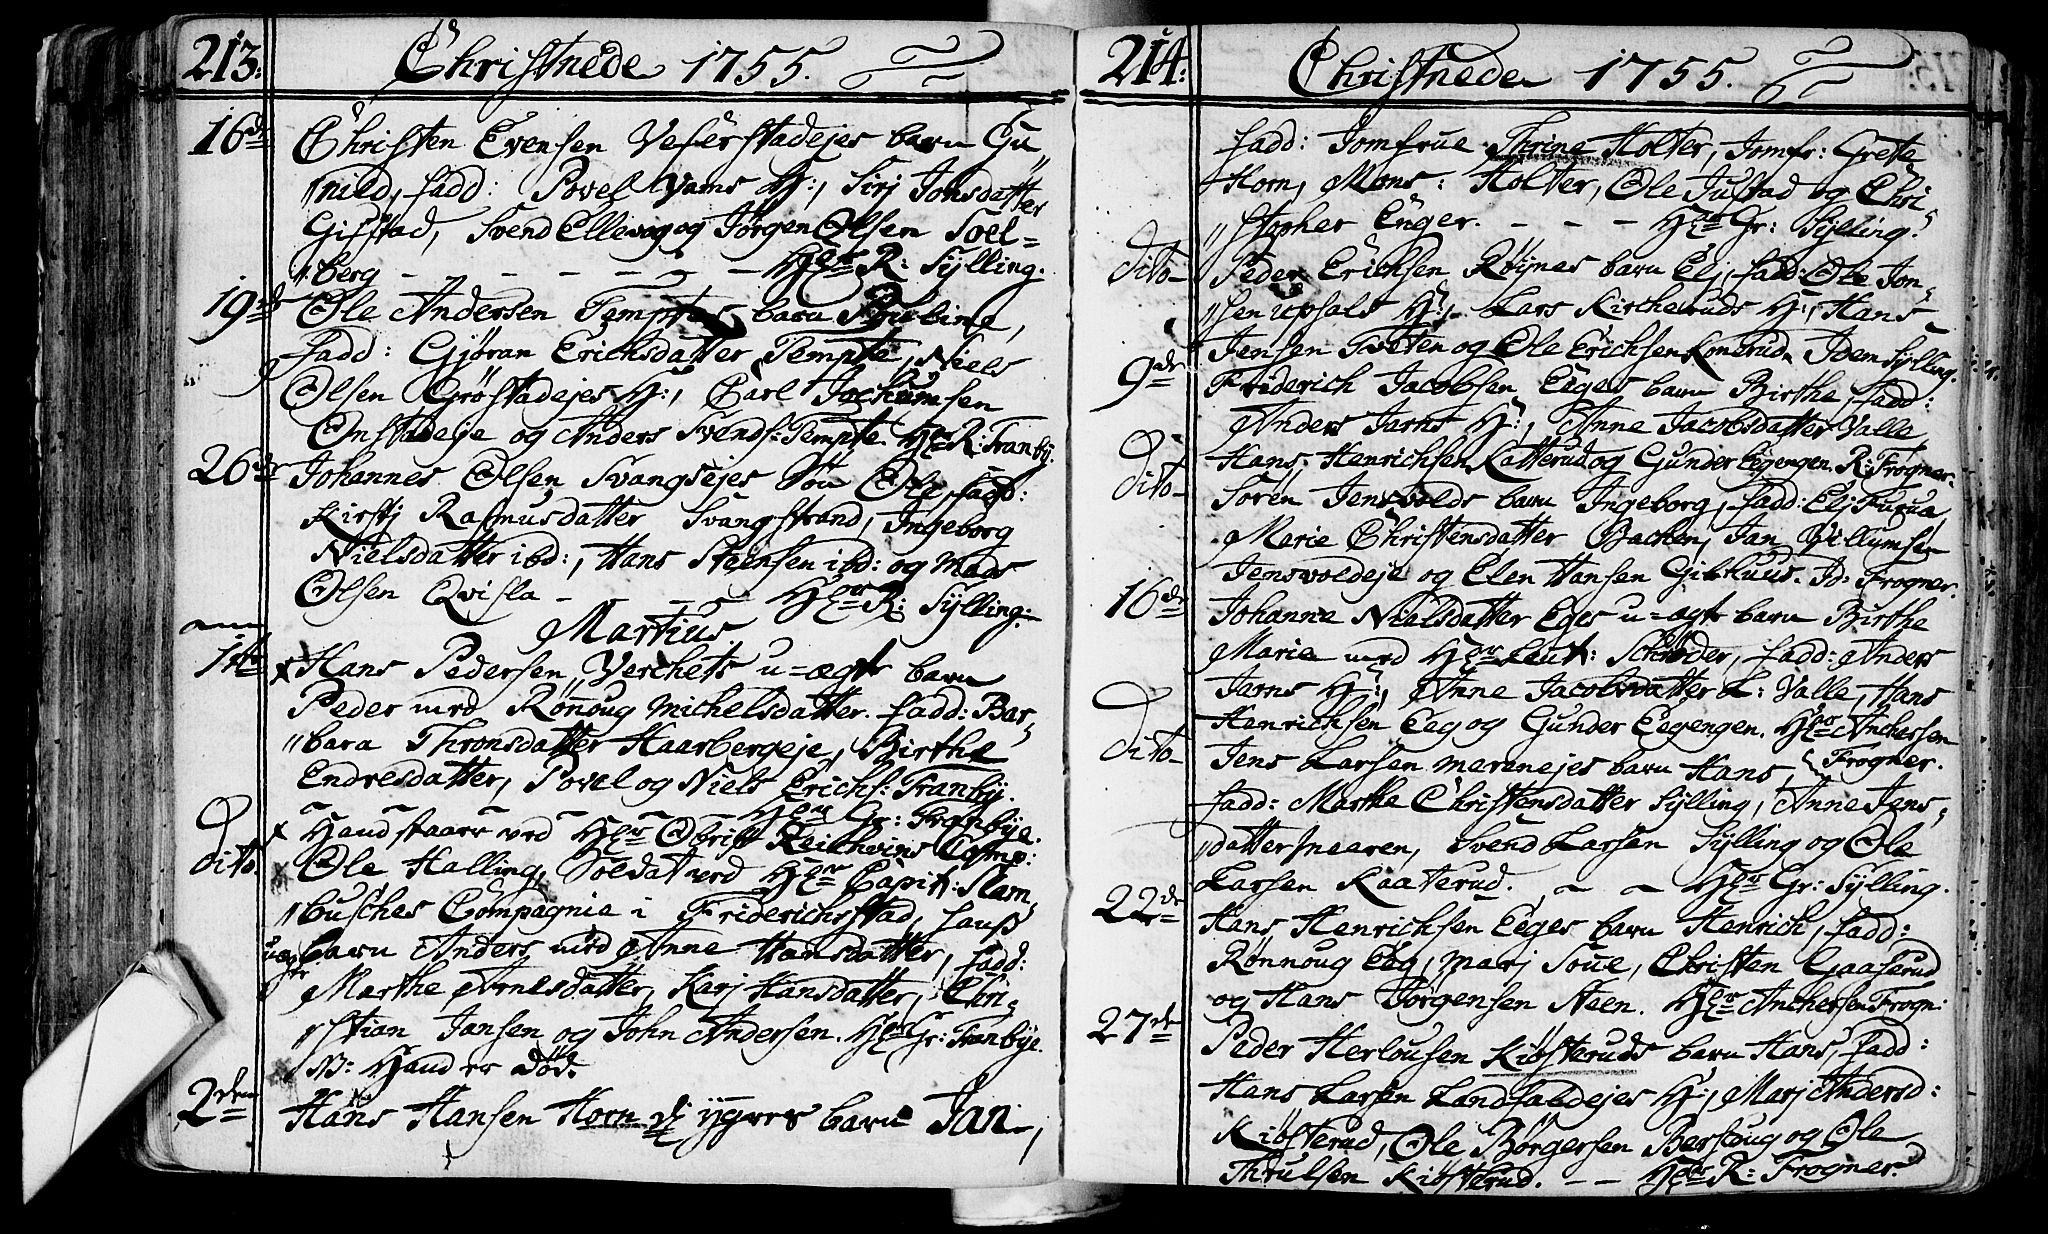 213:
Christnede 1755.
16de Christen Evensen Veserstadejes barn Gu„
nild, fadd: Povel Vams H:, Sirj Jonsdatter
Gisstad, Svend Ellevog og Jörgen Olsen Soel=
„berg - - - - - - - Her R: Sylling.
19de Ole Andersen Temptes barn
fadd: Gjöran Erichsdatter Tempte, Niels
Olsen Gröstadejes H:, Carl Jochumsen
Onstadeje og Anders Svends: Tempte. Her R: Tranby.
26de Johannes Olsen Svangsejes Sön Ole, fadd:
Kirstj Rasmusdatter Svangstrand, Ingeborg
Nielsdatter ibd:, Hans Steensen ibd: og Mads
Olsen Qvisla - - - Her R: Sylling.
Martius.
1ste Hans Pedersen Verchets u=ægte barn
Peder med Rönnoug Michelsdatter. fadd: Bar„
„bara Thronsdatter Haarbergeje, Birthe
Endresdatter, Povel og Niels Erichs: Tranby.
Her Gr: Tranbye.
Hand staar ved Her Obrist Reichvins Comp:
Dito. Ole Halling, Soldat ved Her Capit: Ram„
„busches Compagnie i Friderichstad, hans
uægte barn Anders med Anne Hansdatter, fadd:
Marthe Arnesdatter, Karj Hansdatter, Chri„
„stian Jansen og John Andersen. Her Gr: Tranbye.
NB: Hand er död.
2den Hans Hansen Horn d: yngres barn Jan,
214:
Christnede 1755.
fadd: Jomfrue Thrine Holter, Jomfr: Grete
Horn, Mons: Holter, Ole Justad og Chri„
„stopher Enger. - - - Her Gr: Sylling.
Dito Peder Erichsen Röynes barn Elj, fadd: Ole Jon„
„sen Upsals H:, Lars Kircheruds H:, Hans
Jensen Tveten og Ole Erichsen Lonerud. Idem Sylling.
9de Friderich Jacobsen Eeges barn Birthe, fadd:
Anders Jarns H:, Anne Jacobsdatter Valle,
Hans Henrichsen Katterud og Gunder Eegengen. R: Frogner.
Dito Sören Jensvolds barn Ingeborg, fadd: Elj Furua,
Marie Christensdatter Bachen, Jan Villumsen
Jensvoldeje og Elen Hansen Gilhuus. Id: Frogner.
16de Johanne Nielsdatter Eges u=ægte barn Birthe
Marie med Her Leut: Schröder, fadd: Anders
Jarns H:, Anne Jacobsdatter L: Valle, Hans
Henrichsen Eeg og Gunder Eegengen. Her Anchersen
Frogner.
Dito Jens Larsen Merenejes barn Hans,
fadd: Marthe Christensdatter Sylling, Anne Jens„
„datter Snearen, Svend Larsen Sylling og Ole
Larsen Kaaterud. - - Her Gr: Sylling.
22de Hans Henrichsen Eeges barn Henrich, fadd:
Rönnoug Eeg, Marj Soue, Christen Gaaserud
og Hans Jörgensen Steen. Her Anchersen Frogn:
27de Peder Herlousen Kiösteruds barn Hans, fadd:
Hans Larsen Landfaldejes H:, Marj Andersd:
Kiösterud, Ole Börgersen Berskoug og Ole
Thrulsen Kiösterud. - - Her R: Frogner.